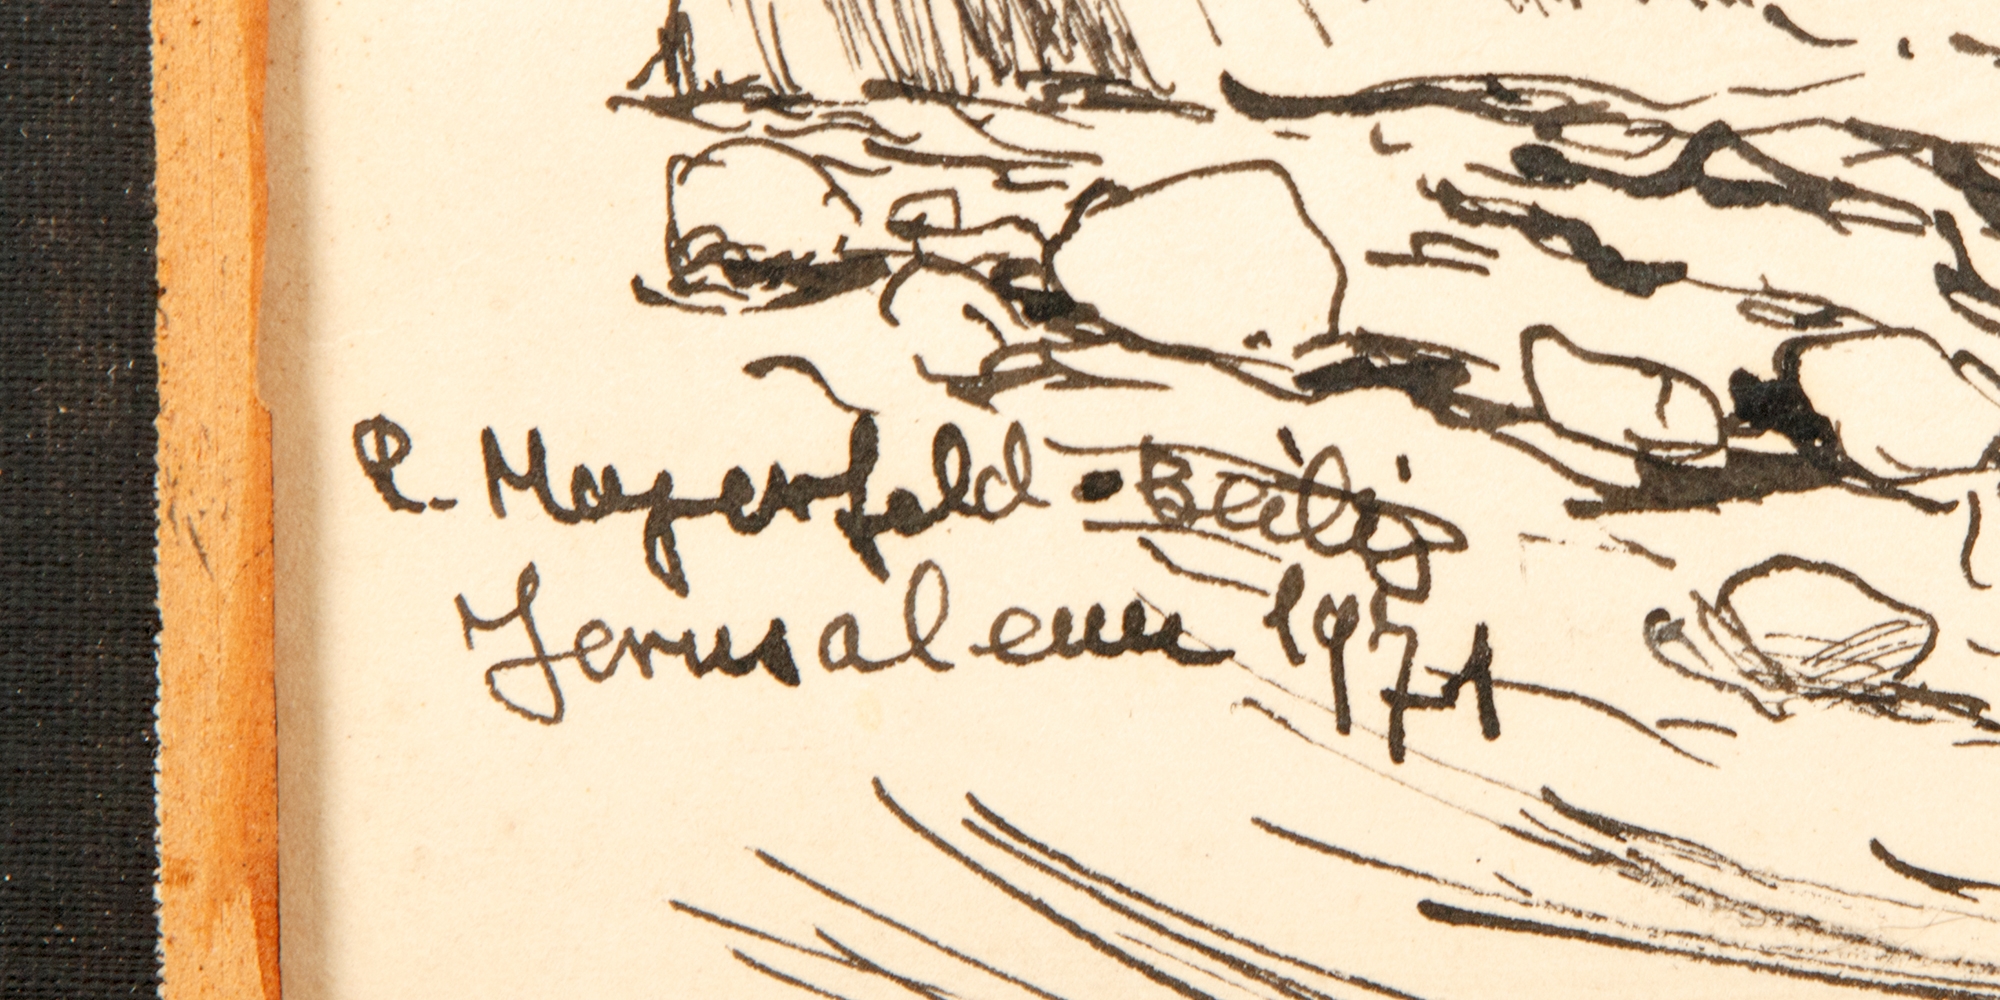 R. Mayerfeld - Beilis
Jerusalem 1971